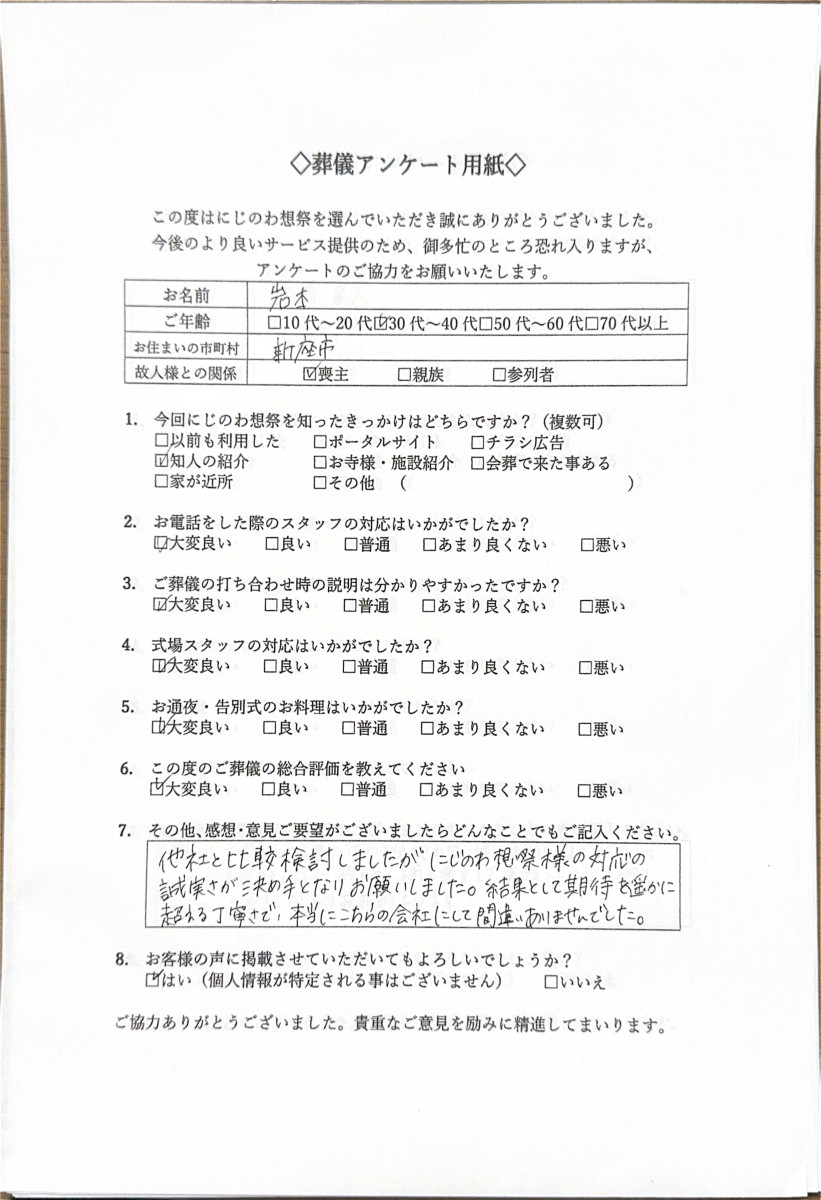 ◇葬儀アンケート用紙◇
この度はにじのわ想祭を選んでいただき誠にありがとうございました。
今後のより良いサービス提供のため、御多忙のところ恐れ入りますが、
アンケートのご協力をお願いいたします。
お名前 岩本
ご年齢 □10代～20代☑30代～40代□50代～60代□70代以上
お住まいの市町村 新座市
故人様との関係 ☑喪主 □親族 □参列者
1. 今回にじのわ想祭を知ったきっかけはどちらですか？（複数可）
□以前も利用した □ポータルサイト □チラシ広告
☑知人の紹介 □お寺様・施設紹介 □会葬で来た事ある
□家が近所 □その他 （ ）
2. お電話をした際のスタッフの対応はいかがでしたか？
☑大変良い □良い □普通 □あまり良くない □悪い
3. ご葬儀の打ち合わせ時の説明は分かりやすかったですか？
☑大変良い □良い □普通 □あまり良くない □悪い
4. 式場スタッフの対応はいかがでしたか？
☑大変良い □良い □普通 □あまり良くない □悪い
5. お通夜・告別式のお料理はいかがでしたか？
☑大変良い □良い □普通 □あまり良くない □悪い
6. この度のご葬儀の総合評価を教えてください
☑大変良い □良い □普通 □あまり良くない □悪い
7. その他、感想・意見ご要望がございましたらどんなことでもご記入ください。
他社と比較検討しましたがにじのわ想祭様の対応の
誠実さが決め手となりお願いしました。結果として期待を遥かに
超える丁寧さで、本当にこちらの会社にして間違いありませんでした。
8. お客様の声に掲載させていただいてもよろしいでしょうか？
☑はい（個人情報が特定される事はございません） □いいえ
ご協力ありがとうございました。貴重なご意見を励みに精進してまいります。